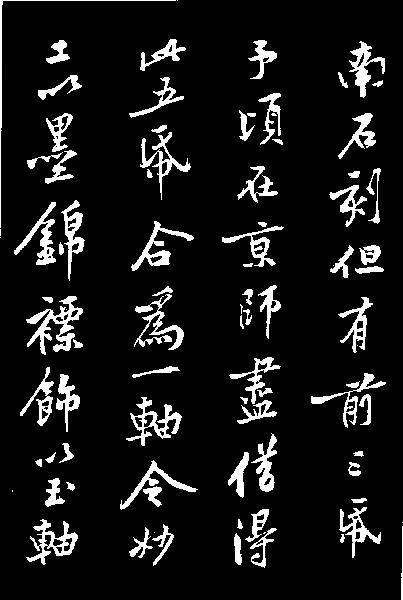 南石刻但有前三纸
予頃在京師盡借得
此五纸合為一軸令妙
工以墨錦褾飾以玉軸